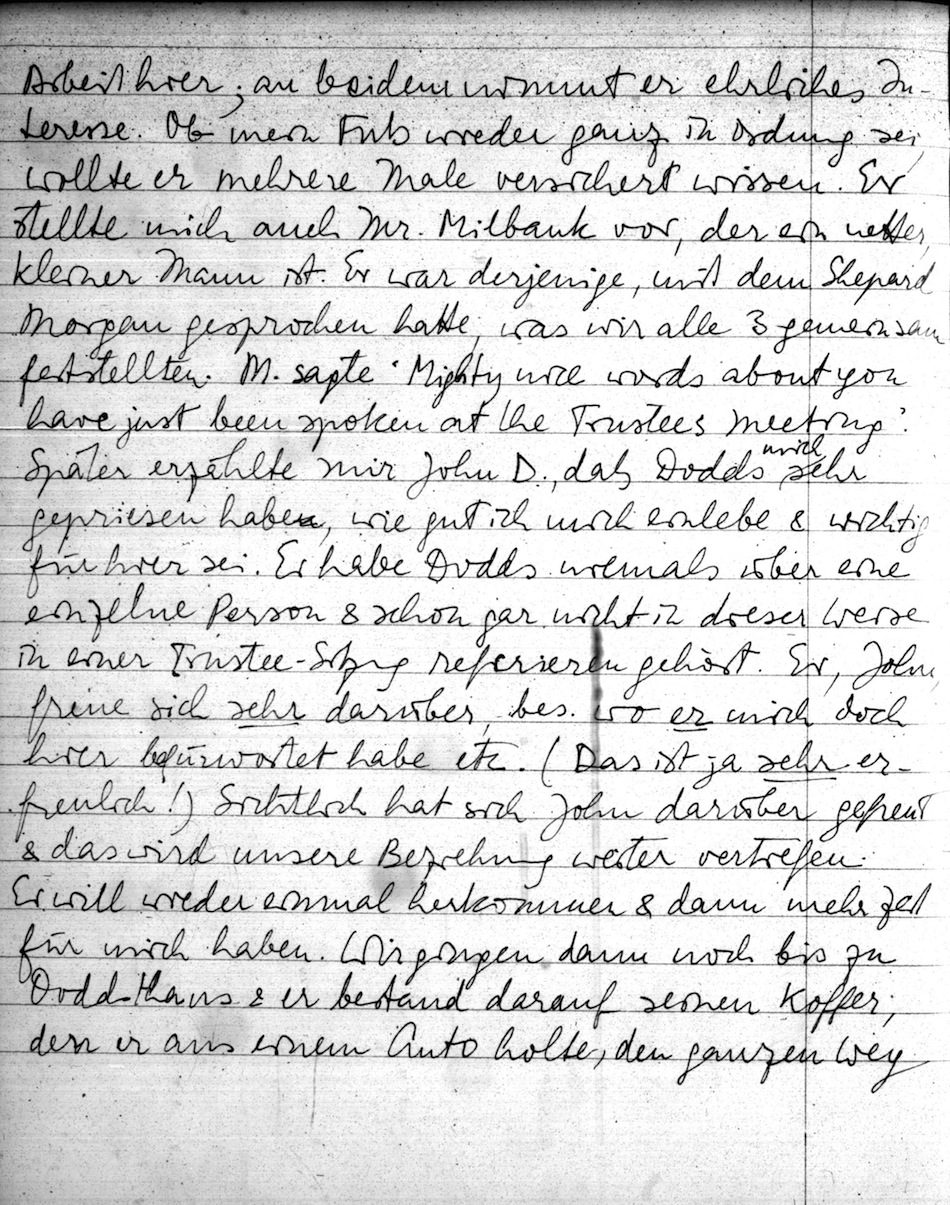 Arbeit hier; an beidem nimmt er ehrliches In-
teresse. Ob mein Fuß wieder ganz in Ordnung sei,
wollte er mehrere Male versichert wissen. Er
stellte mich auch Mr. Milbank vor, der ein netter,
kleiner Mann ist. Er war derjenige, mit dem Shepard
Morgan gesprochen hatte, was wir alle 3 gemeinsam
feststellten. M. sagte "Mighty nice words about you
have just been spoken at the Trustees meeting".
Später erzählte mir John D., daß Dodds mich sehr
gepriesen habe, wie gut ich mich einlebe & wichtig
für hier sei. Er habe Dodds niemals über eine
einzelne Person & schon gar nicht in dieser Weise
in einer Trustee-Sitzg referieren gehört. Er, John,
freue sich sehr darüber, bes. wo er mich doch
hier befürwortet habe etc. (Das ist ja sehr er-
freulich!) Sichtlich hat sich John darüber gefreut
& das wird unsere Beziehung weiter vertiefen.
Er will wieder einmal herkommen & dann mehr Zeit
für mich haben. Wir gingen dann noch bis zu
Dodd-Haus & er bestand darauf seinen Koffer,
den er aus einem Auto holte, den ganzen Weg